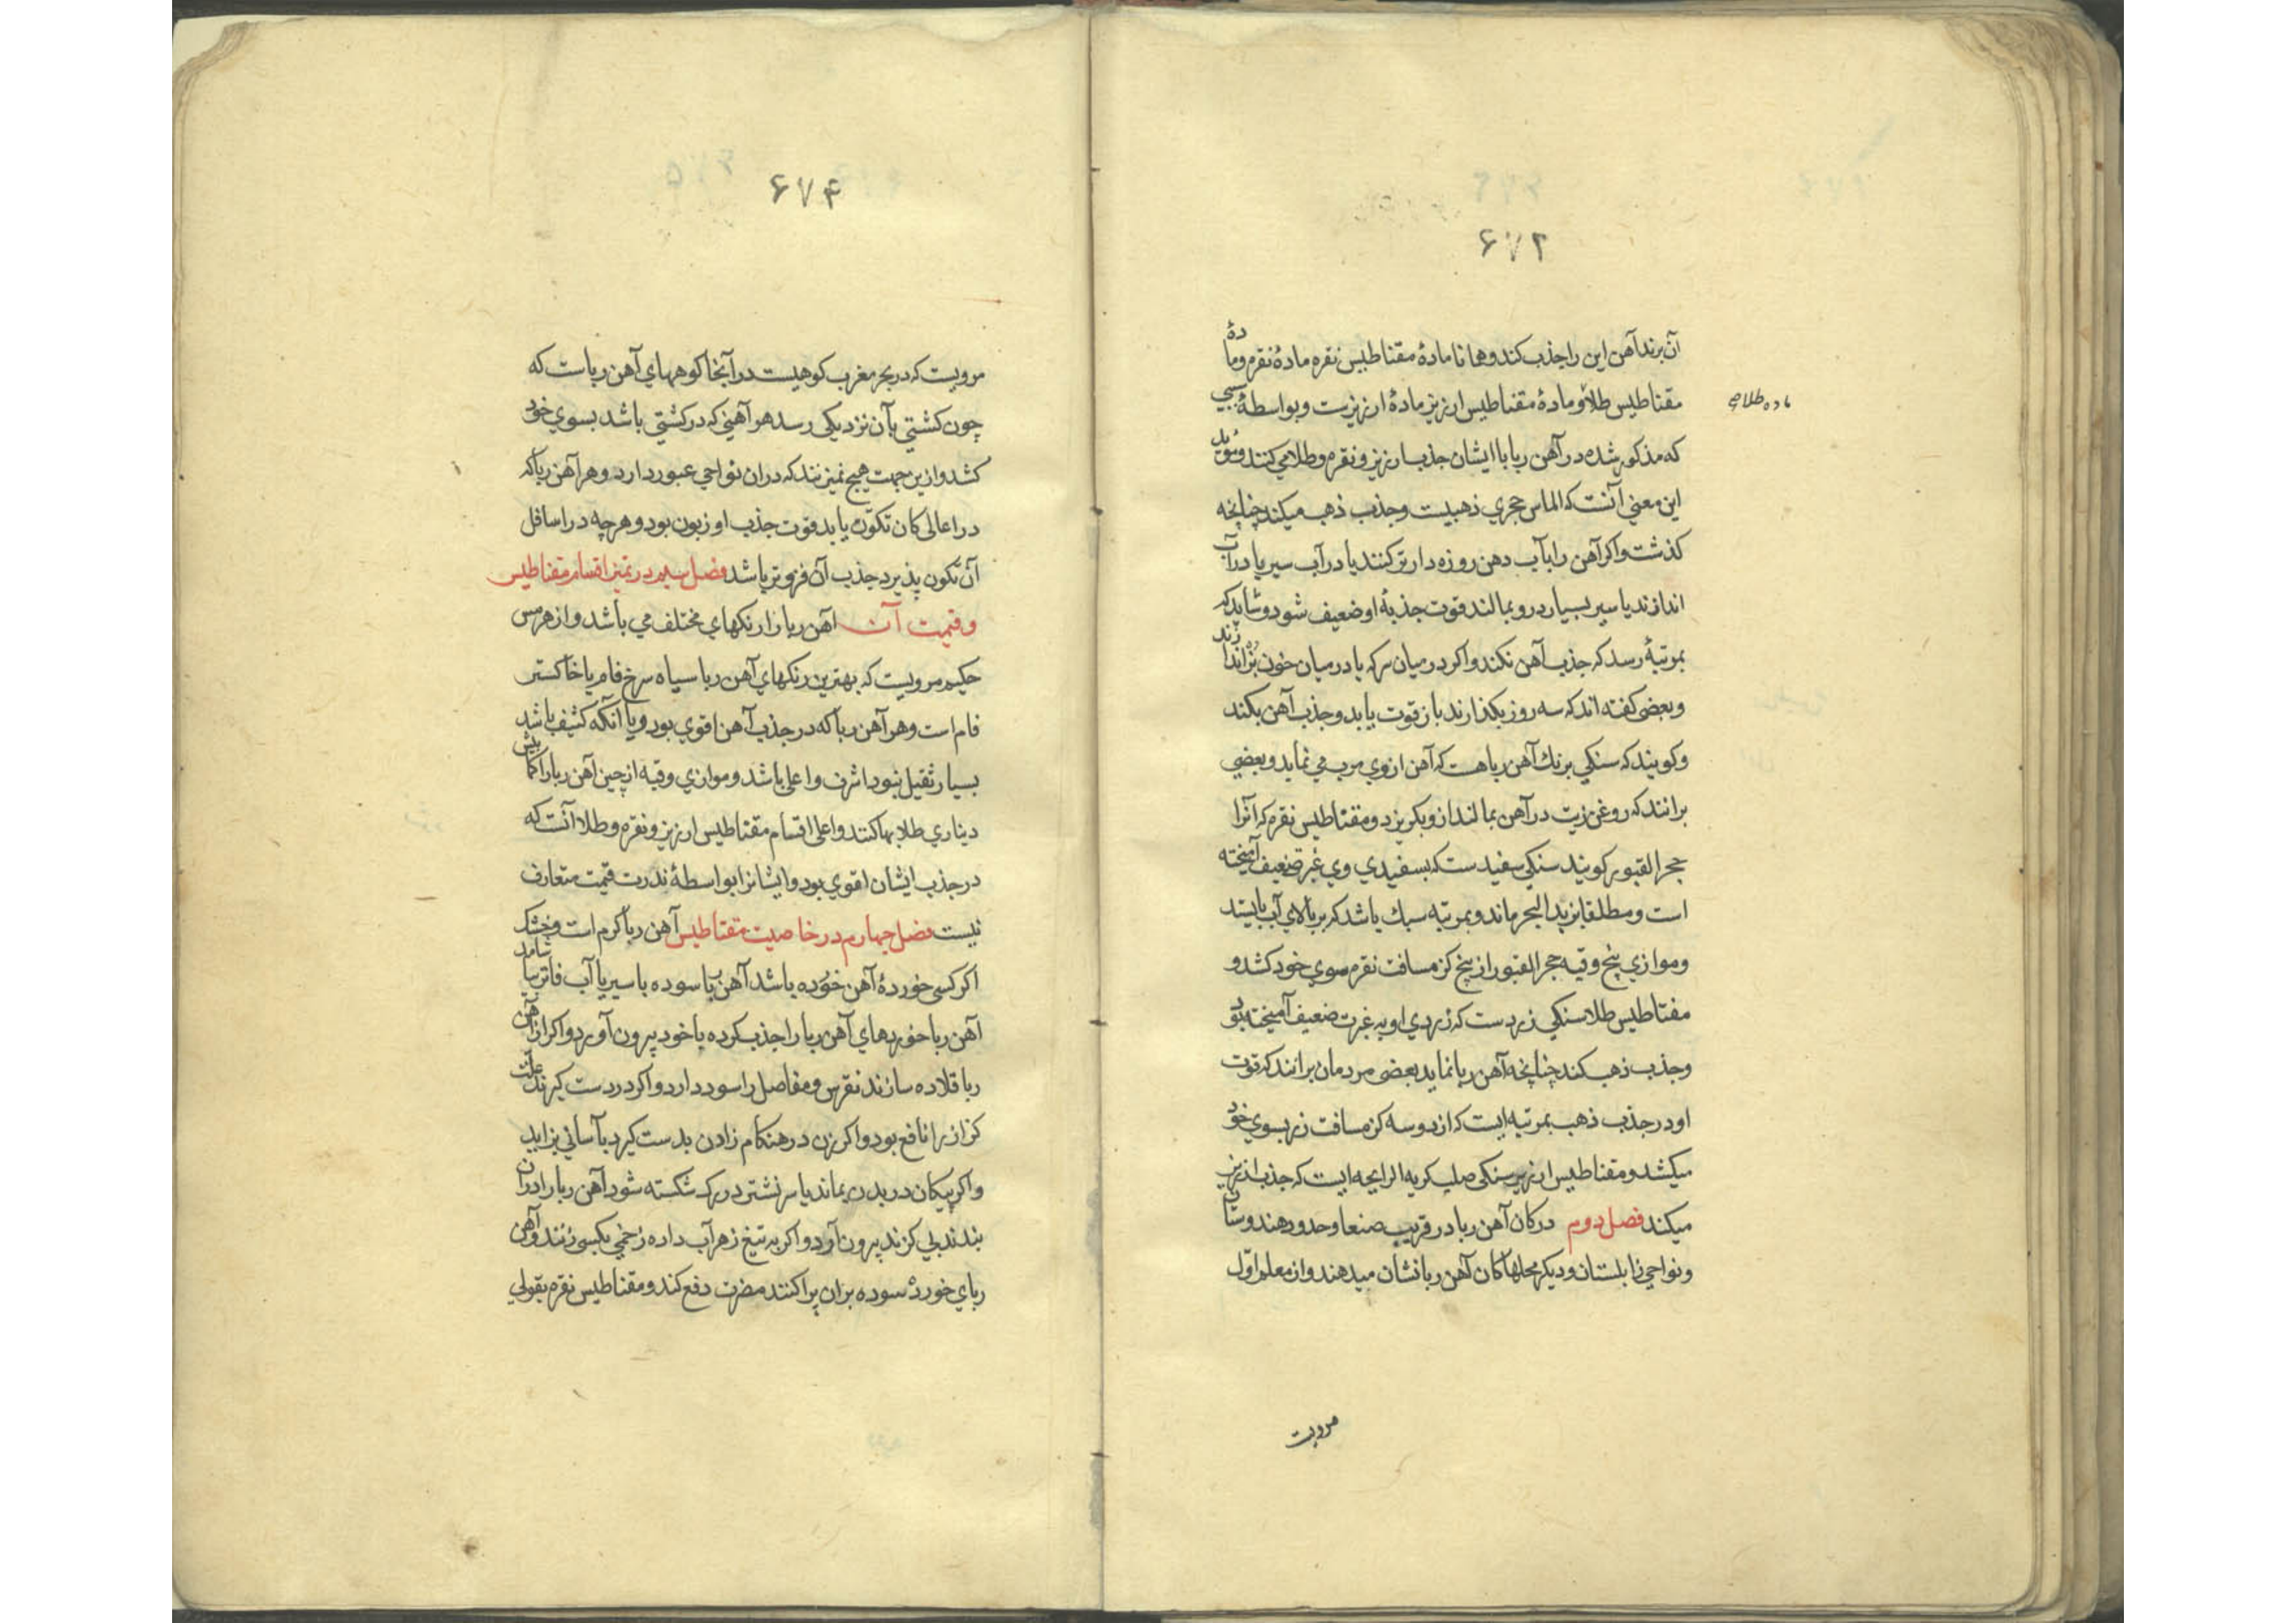 ۶۷۲
آن برند آهن این را جذب کند و همانا مادهٔ مقناطیس نقره مادهٔ نقره و مادهٔ
مقناطیس طلا و مادهٔ مقناطیس ارزیز مادهٔ ارزیزست و بواسطهٔ سببی
ماده طلا صح
که مذکور شده در آهن ربا با ایشان جذب ارزیز و نقره و طلا می کنند و مؤید
این معنی آنست که الماس حجری ذهبیست و جذب ذهب میکند چنانچه
کذشت و اکر آهن را بآب دهن روزه دار تر کنند یا در آب سیر یا در آب
اندازند یا سیر بسیار درو بمالند قوت جذبهٔ او ضعیف شود و شاید که
بمرتبهٔ رسد که جذب آهن نکند و اکر در میان سرکه یا در میان خون بز اندازند
و بعضی کفته اند که سه روز بکذارند باز قوت یابد و جذب آهن بکند
و کویند که سنکی برنك آهن ربا هست که آهن از وی هرب می نماید و بعضی
برانند که روغن زیت در آهن بمالند ازو بکریزد و مقناطیس نقره که آنرا
حجر القبور کویند سنکی سفیدست که بسفیدی وی غبرة ضعیف آمیخته
است و مطلقا بزبد البحر ماند و بمرتبه سبك باشد که بر بالای آب بایستد
و موازی پنج وقیه حجر القبور از پنج کز مسافت نقره سوی خود کشد و
مقناطیس طلا سنکی زردست که زردی او به غبرت ضعیف آمیخته بود
و جذب ذهب کند چنانچه آهن ربا نماید بعضی مردمان برانند که قوت
او در جذب ذهب بمرتبه ایست که از دو سه کز مسافت زر بسوی خود
میکشد و مقناطیس ارزیز سنکی صلب کریه الرایحه ایست که جذب ارزیز
میکند فصل دوم در کان آهن ربا در قریب صنعا و حدود هندوستان
و نواحی زابلستان و دیکر محلها کان آهن ربا نشان میدهند و از معلم اوّل
مرویست
۶۷۴
مرویست که در بحر مغرب کوهیست در آنجا کوههای آهن رباست که
چون کشتی بآن نزدیکی رسد هر آهنی که در کشتی باشد بسوی خود
کشد و ازین جهت هیچ نمیزنند که در ان نواحی عبور دارد و هر آهن ربا که
در اعالی کان تکوّن یابد قوت جذب او زبون بود و هرچه در اسافل
آن تکون پذیرد جذب آن فزونتر باشد فصل سیم در تمیز اقسام مقناطیس
و قیمت آن آهن ربا را رنکهای مختلف می باشد و از هرمس
حکیم مرویست که بهترین رنکهای آهن ربا سیاه سرخ فام یا خاکستر
فام است و هر آهن ربا که در جذب آهن اقوی بود و با آنکه کثیف باشد
بسیار ثقیل نبود اشرف و اعلی باشد و موازی وقیه از چنین آهن ربا را کمابیش
دیناری طلا بها کنند و اعلی اقسام مقناطیس ارزیز و نقره و طلا آنست که
در جذب ایشان اقوی بود و ایشانرا بواسطهٔ ندرت قیمت متعارف
نیست فصل چهارم در خاصیت مقناطیس آهن ربا کرم است و خشک
اکر کسی خوردهٔ آهن خورده باشد آهن ربا سوده با سیر یا آب فاتر بیاشامد
آهن ربا خوردهای آهن ربا را جذب کرده با خود بیرون آورد و اکر از آهن
ربا قلاده سازند نقرس و مفاصل را سود دارد و اکر در دست کیرند علت
کزاز را نافع بود و اکر زن در هنکام زادن بدست کیرد بآسانی بزاید
و اکر پیکان در بدن بماند یا سر نشتر در رک شکسته شود آهن ربا را در آن
بندند بی کزند بیرون آورد و اکر به تیغ زهر آب داده زخمی بکسی زنند و آهن
ربای خوردهٔ سوده بران پراکنند مضرت دفع کند و مقناطیس نقره بقولی